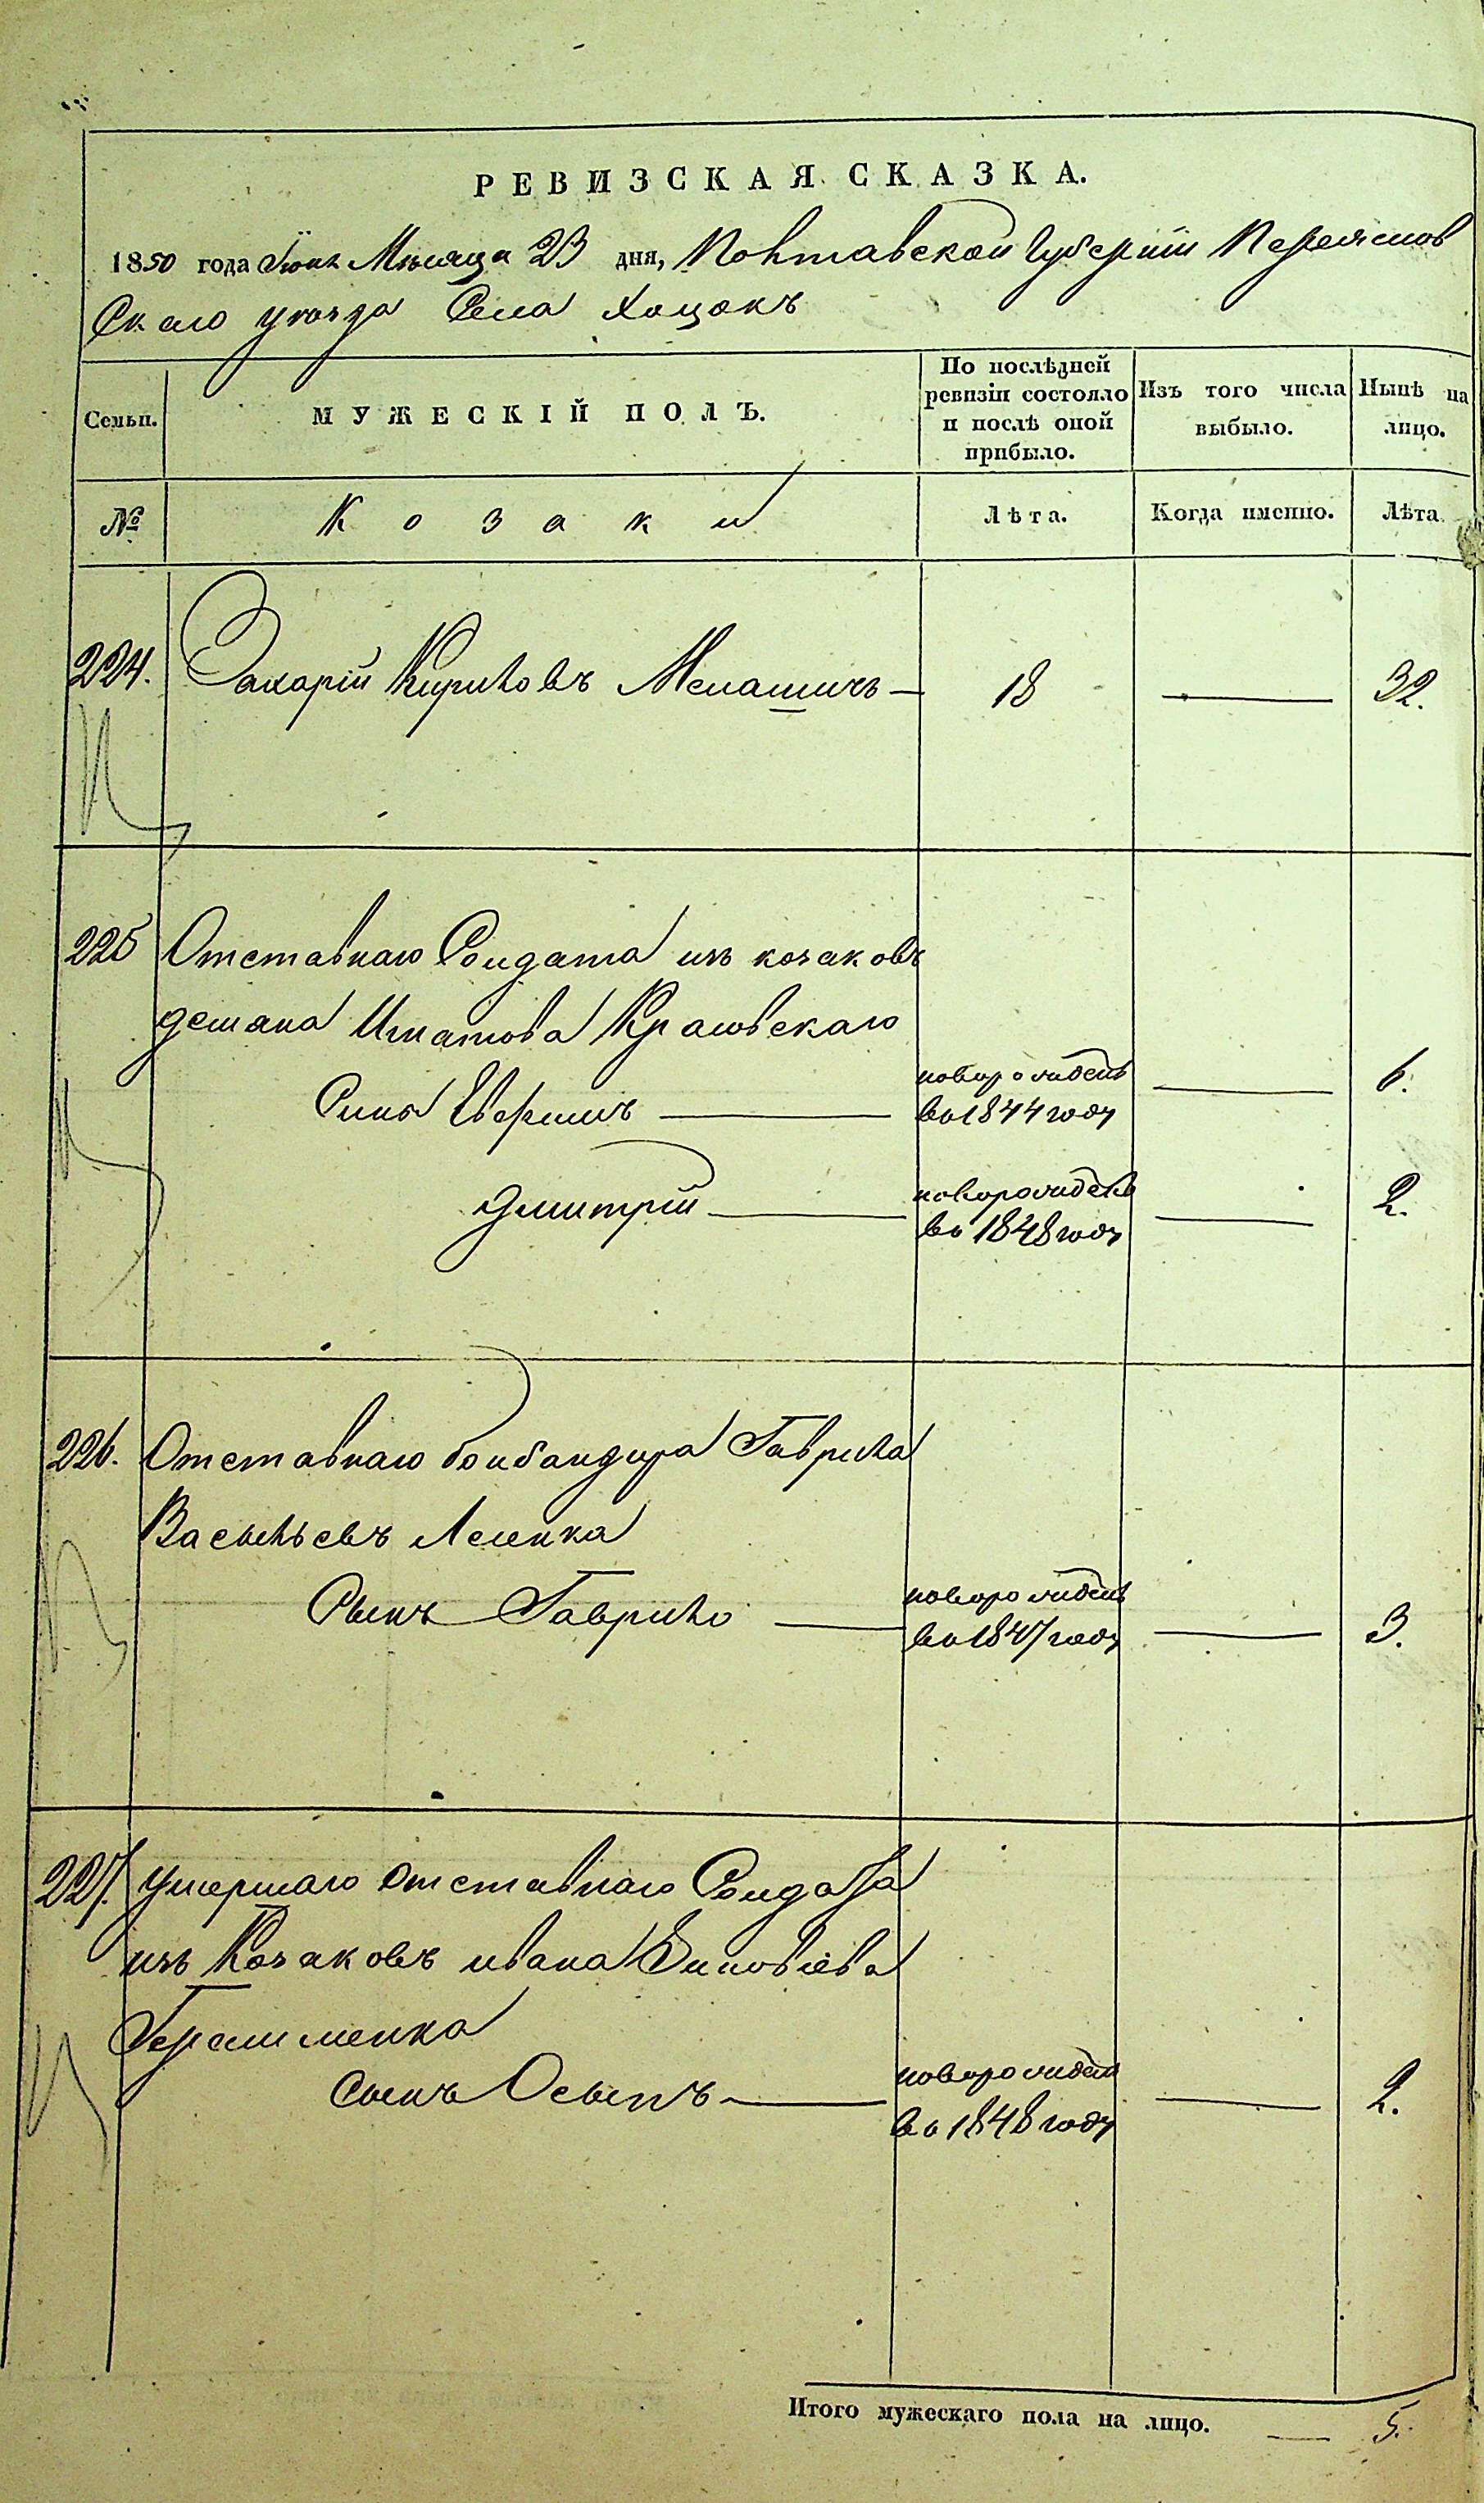 РЕВИЗСКАЯ СКАЗКА.
1850 года Іюня Мѣсяца 23 дня, Полтавской Губерніи Переяслов
Скаго уѣзда Села Хоцокъ
Семьи.
МУЖЕСКІЙ ПОЛЪ.
По послѣдней ревизіи состояло и послѣ оной прибыло.
Изъ того числа выбыло.
Нынѣ на лицо.
№
Козаки
Лѣта.
Когда именно.
Лѣта.
224. Захарій Кириловъ Мелашичъ — 18 — 32.
225 Отставнаго Солдата изъ козаковъ
Игнатова
Сынъ новорожденъ
во 1844 году — 6.
Дмитрій — новорожденъ
во 1848 году — 2.
226. Отставнаго бонбандира Гаврила
Васыльевъ
Сынъ Гаврило — новорожденъ
во 1847 году — 3.
227. умершаго отставнаго Солдата
изъ Козаковъ ивана Зиновіева
Герасименка
сынъ Осыпъ — новорожден
во 1848 году — 2.
Итого мужескаго пола на лицо. — 5.